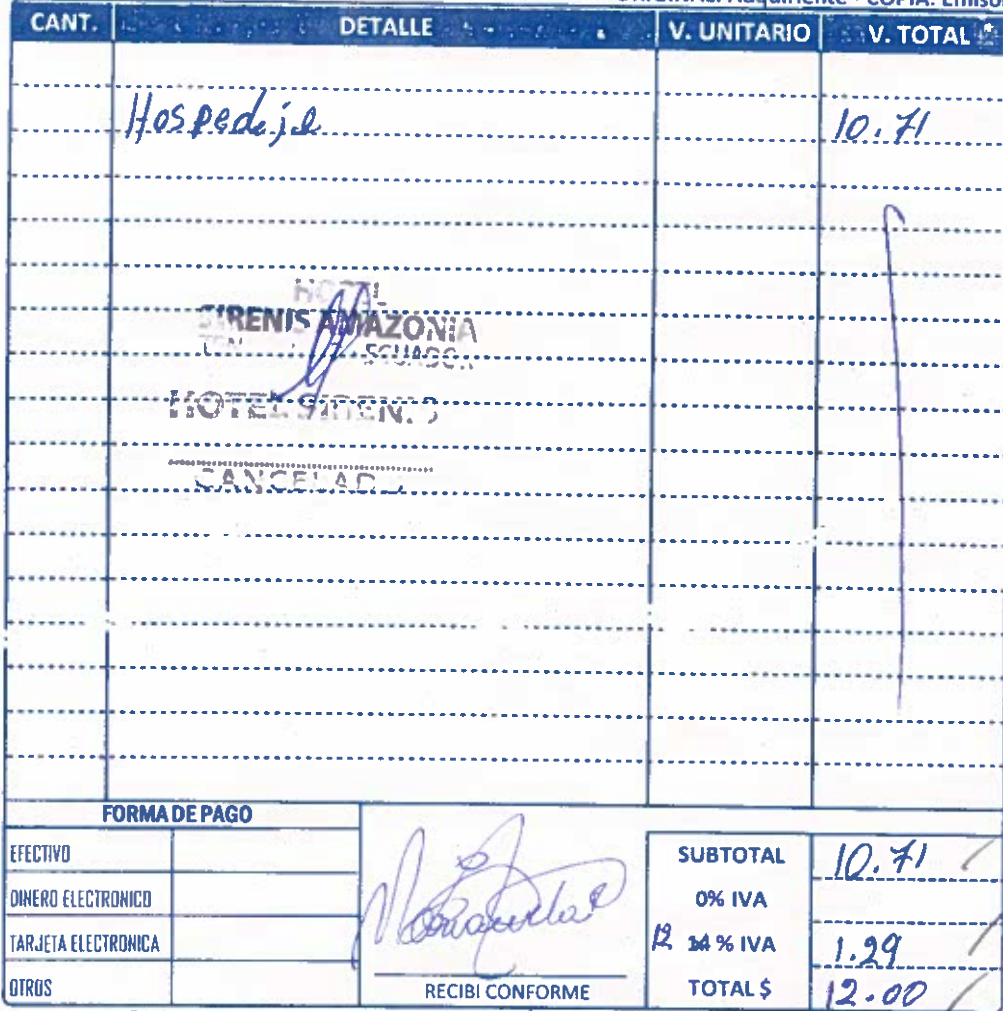 COPIA: Emisor
CANT. DETALLE V. UNITARIO V. TOTAL
Hospedaje 10.71
HOTEL
SIRENIS AMAZONIA
ECUADOR
HOTEL SIRENIS
CANCELADO
FORMA DE PAGO
EFECTIVO
DINERO ELECTRONICO
TARJETA ELECTRONICA
OTROS
RECIBI CONFORME
SUBTOTAL 10.71
0% IVA
12 14 % IVA 1.29
TOTAL $ 12.00